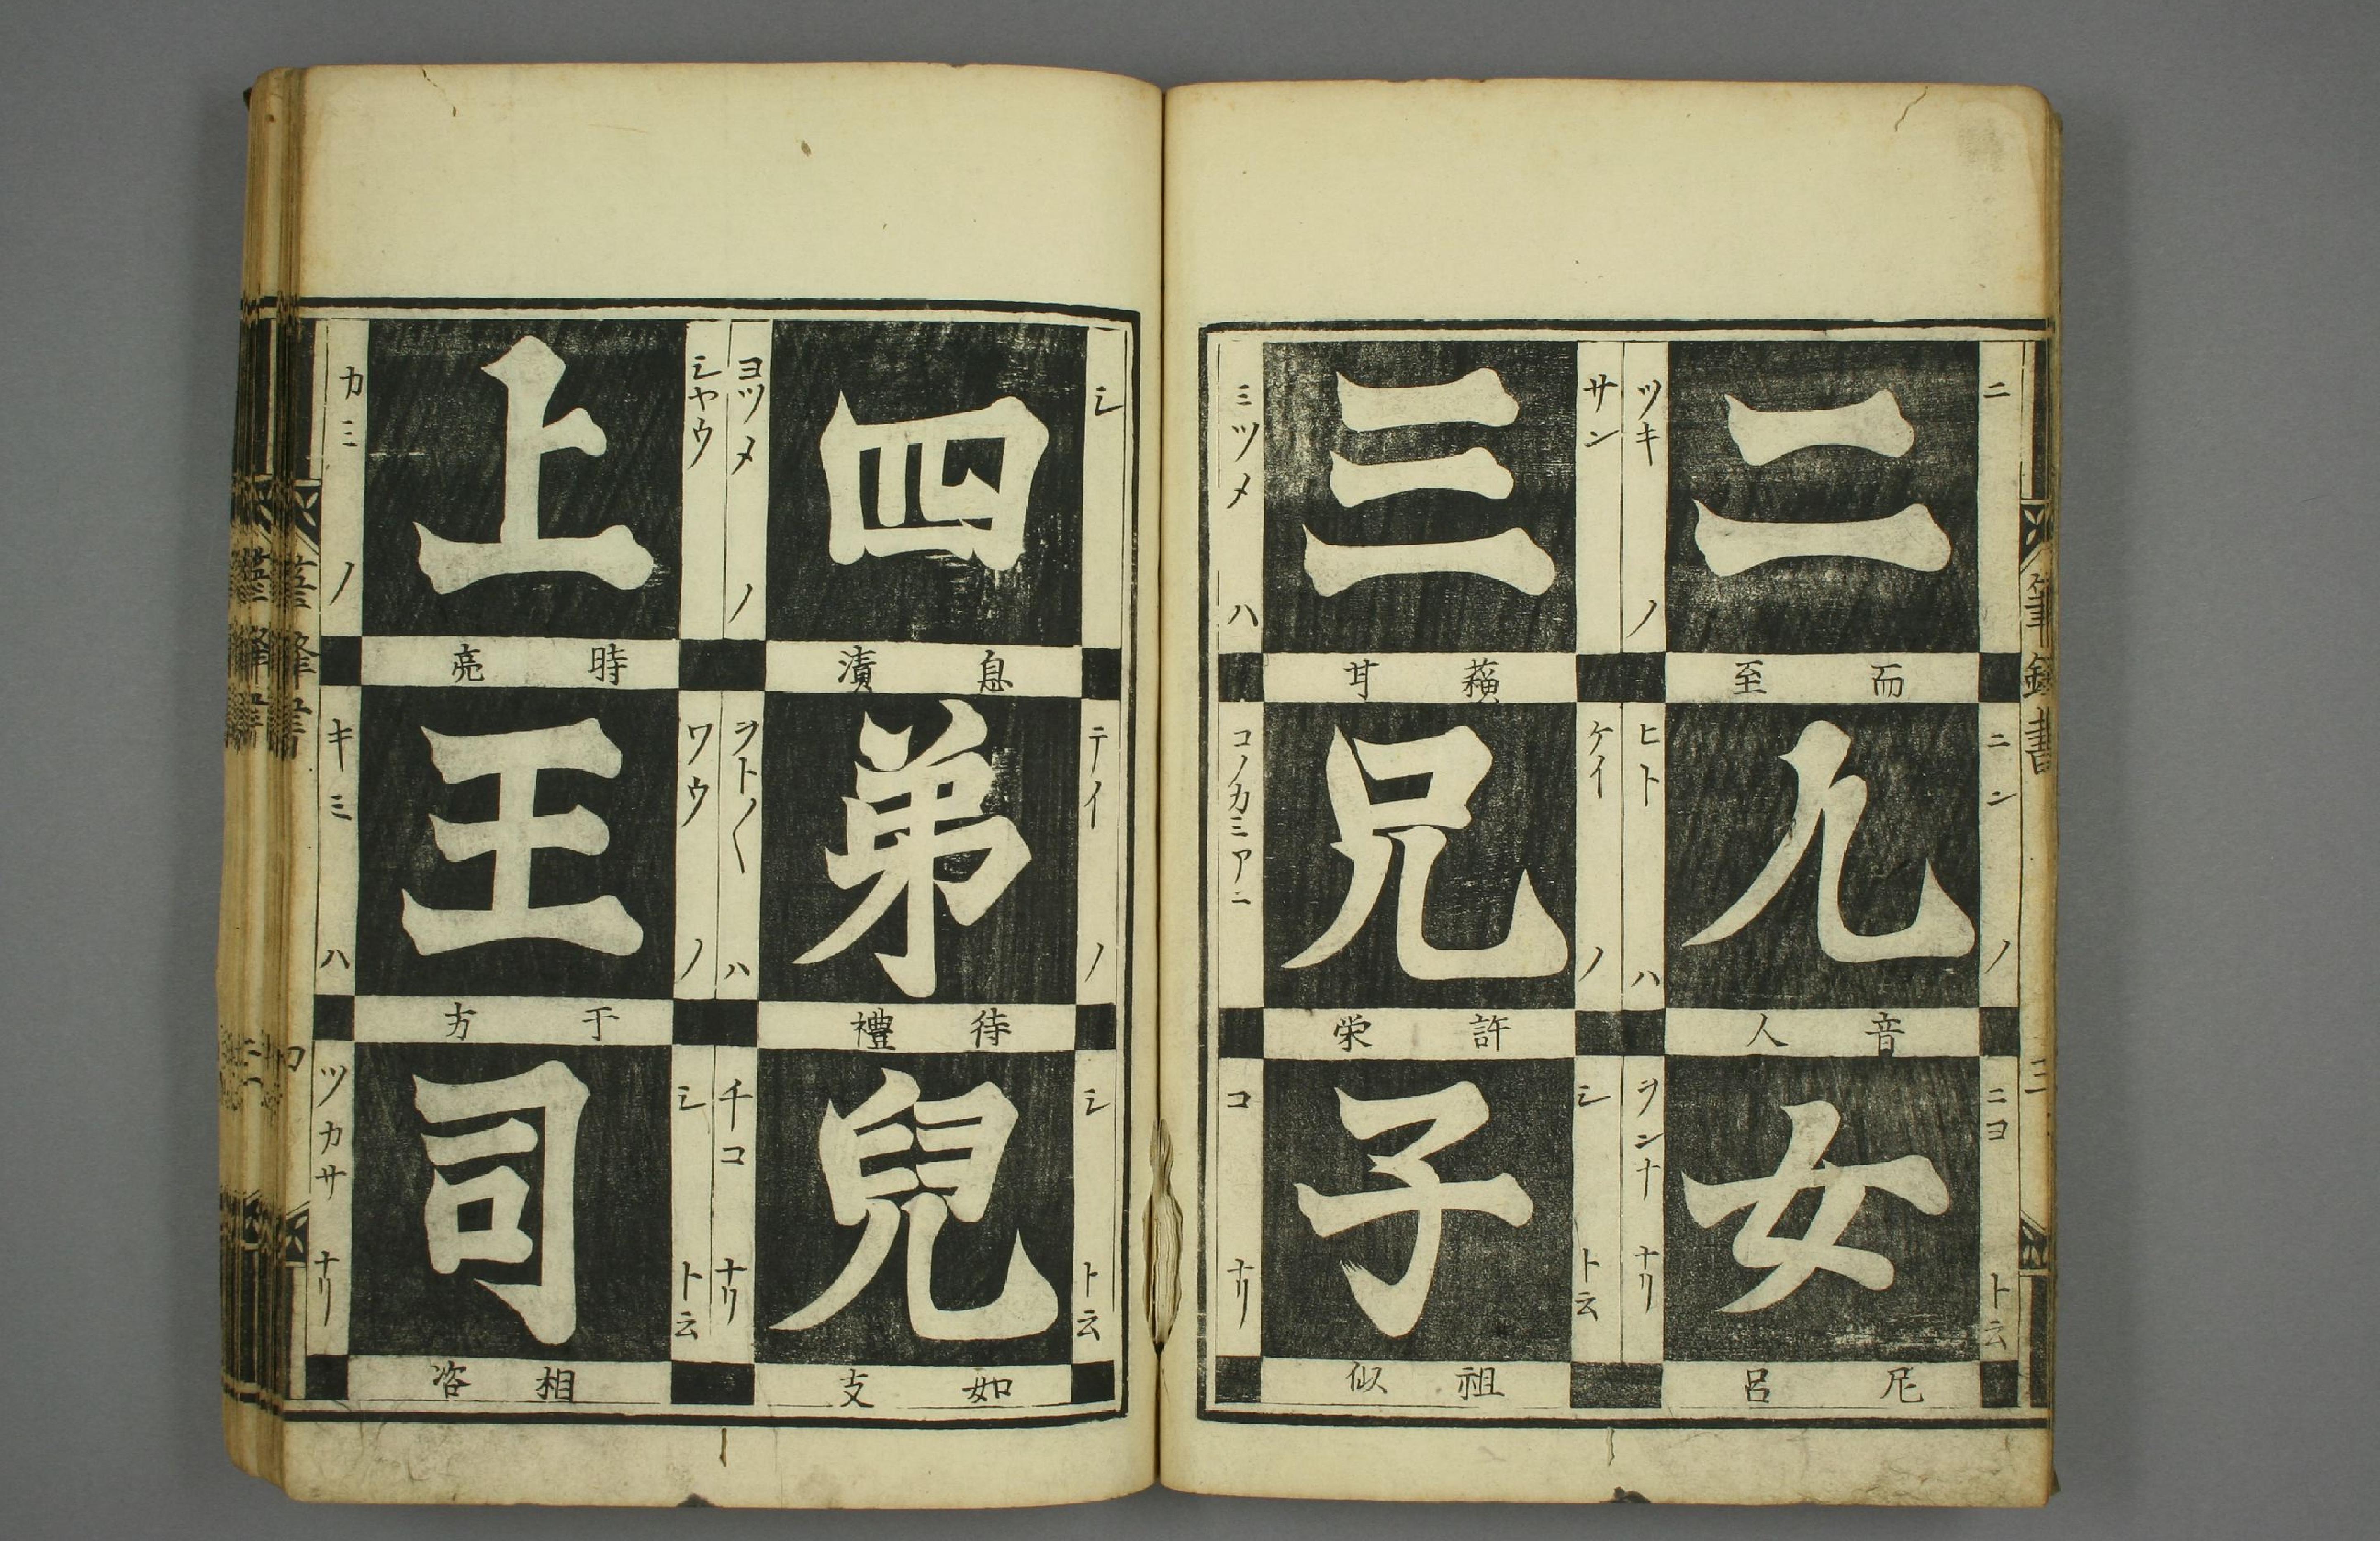 筆鋒書
三
ニ
二
ツキノ
而至
ニンノ
儿
ヒトハ
音人
ニヨト云
女
ヲンナナリ
尼呂
サン
三
ミツメハ
甘
ケイノ
兄
コノカミアニ
許栄
シト云
子
コナリ
祖似
シ
四
ヨツメノ
息漬
テイノ
弟
ヲトノ〱ハ
待禮
シト云
兒
チコナリ
如支
シヤウ
上
カミノ
時亮
ワウノ
王
キミハ
于方
シト云
司
ツカサナリ
相咨